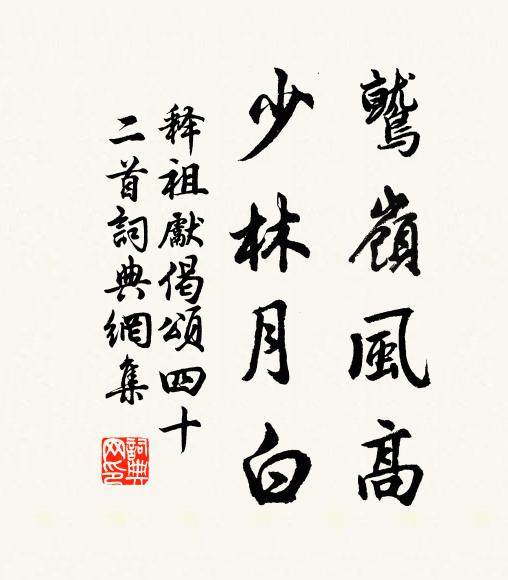 鷲嶺風高
少林月白
释祖獻偈頌四十
二首詞典網集
詞典网印